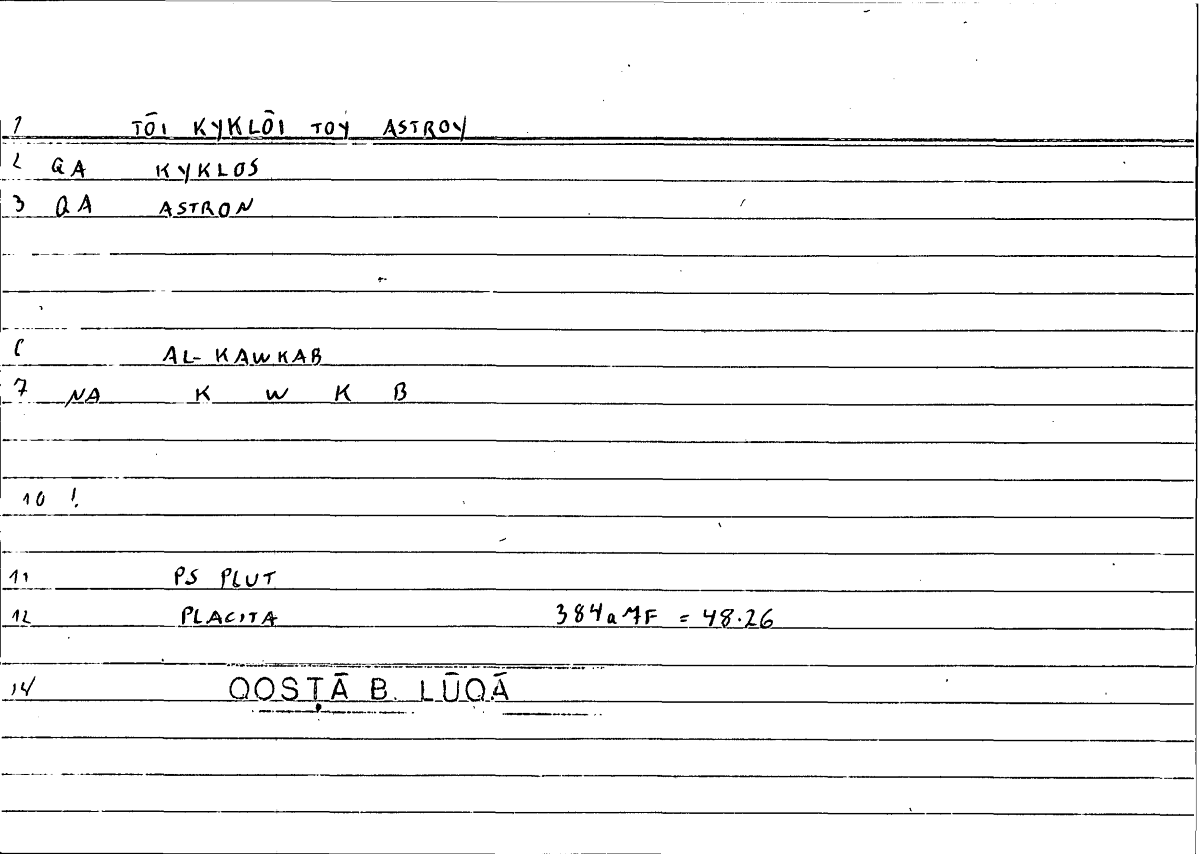 1 TŌI KYKLŌI TOY ASTROY
2 QA KYKLOS
3 QA ASTRON
6 AL-KAWKAB
7 NA K W K B
10 !
11 PS PLUT
12 PLACITA 384a7F = 48.26
14 QOSṬĀ B. LŪQĀ